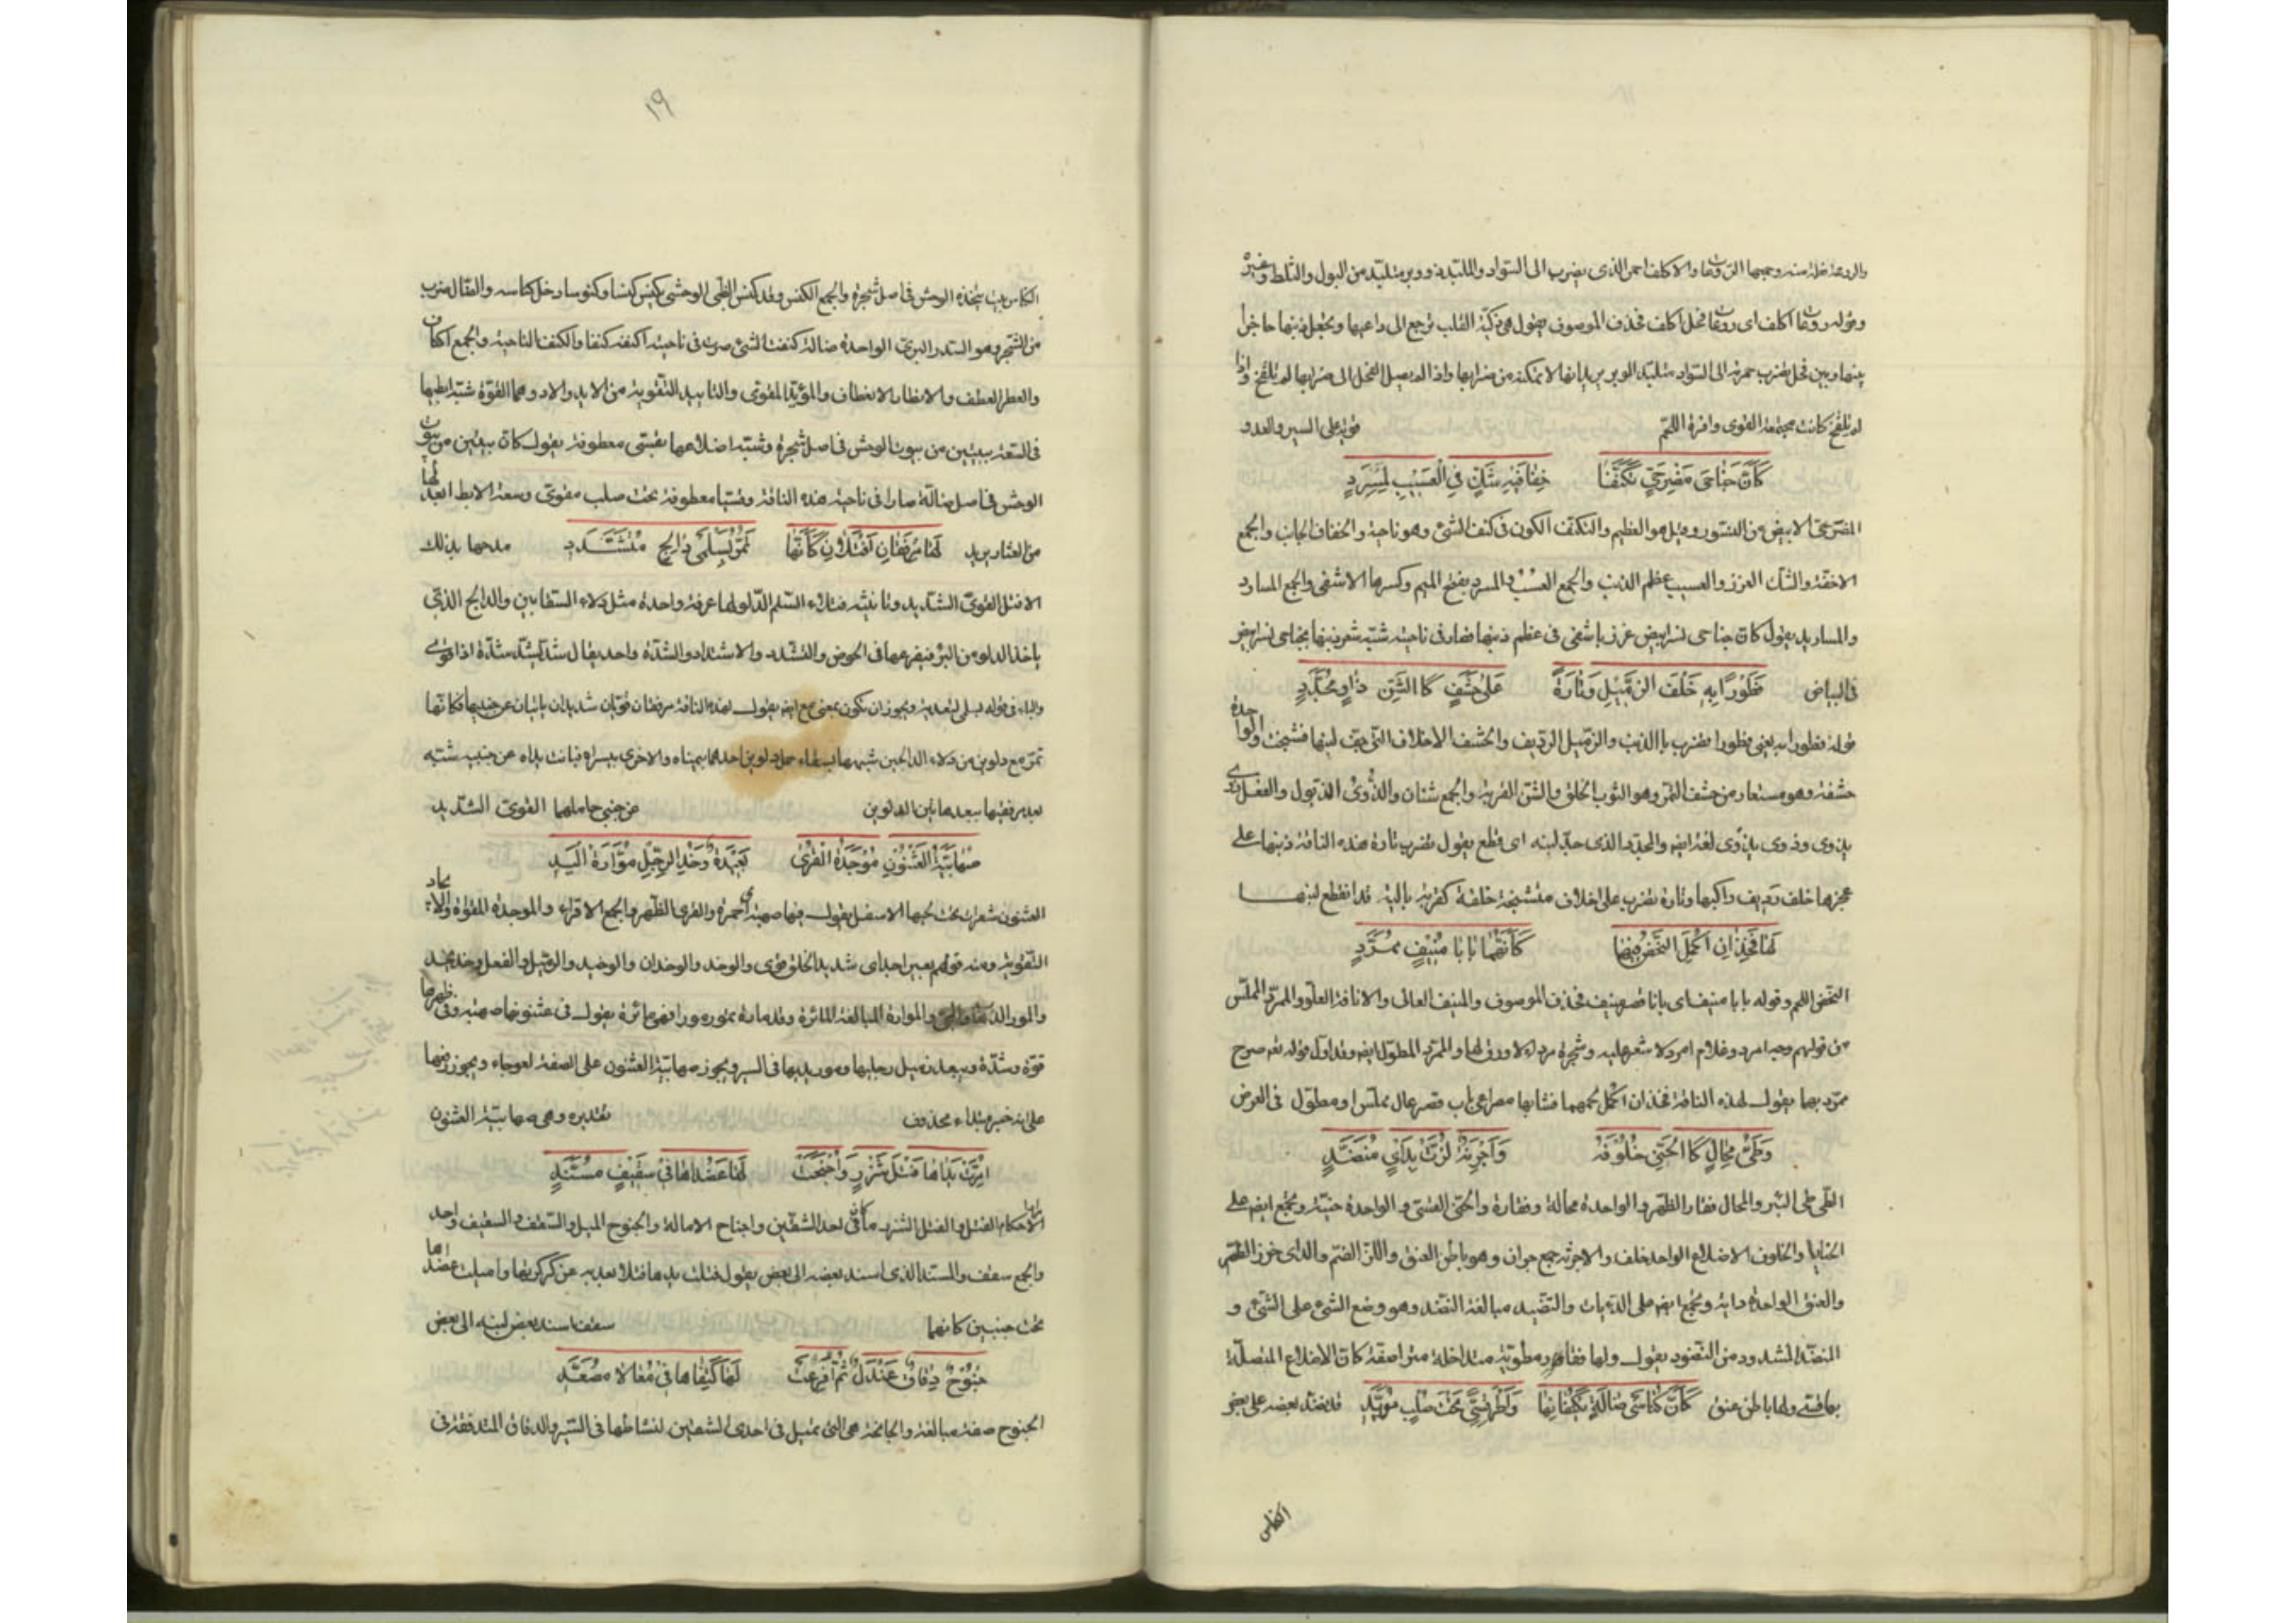 والروعة فعلة منه وجمعها الروعات والاكلف احمر الذى يضرب الى السواد والملبد ذو وبر متلبد من البول والثلط وغيره
وقوله روعات اكلف اى روعات فحل اكلف فحذف الموصوف يقول هى ذكية القلب ترجع الى داعيها وتجعل ذنبها حاجزا
بينها وبين فحل يضرب حمرته الى السواد متلبد الوبر يريد انها لا تمكنه من ضرابها واذا لم يصل الفحل الى ضرابها لم تلقح واذا
لم تلقح كانت مجتمعة القوى وافرة اللحم قوية على السير والعدو
كَأَنَّ جَنَاحَى مَضْرَحِىٍّ تَكَنَّفَا حِفَافَيْهِ شَكَّ فِى الْعَسِيْبِ بِمِسْرَدِ
المضرحى الابيض من النسور وقيل هو العظيم والتكنف الكون فى كنف الشئ وهو ناحية والحفاف الجانب والجمع
الاحفة والشك الغرز والعسيب عظم الذنب والجمع العسب والمسرد بفتح الميم وكسرها الاشفى والجمع المسارد
والمساريد يقول كان جناحى نسر ابيض غرز باشفى فى عظم ذنبها فصار فى ناحيته شبه شعر ذنبها بجناحى نسر ابيض
فى البياض فَطَوْرًا بِهِ خَلْفَ الزَّمِيْلِ وَتَارَةً عَلَى حَشَفٍ كَا الشَّنِّ ذَاوٍ مُجَدَّدِ
قوله فطورا به يعنى فطورا تضرب باالذنب والزميل الرديف والحشف الاخلاف التى جف لبنها فتشنجت والواحدة
حشفة وهو مستعار من حشف التمر وهو الثوب الخلق والشن القربة والجمع شنان والذوى الذبول والفعل ذوى
يذوى وذوى يذوى لغة ايضا والمجدد الذى جد لبنه اى قطع يقول تضرب تارة هذه الناقة ذنبها على
عجزها خلف رديف راكبها وتارة تضرب على اخلاف متشنجة خلقة كقربة بالية قد انقطع لبنها
لَهَا فَخِذَانِ اُكْمِلَ النَّحْضُ فِيْهِمَا كَأَنَّهُمَا بَابَا مُنِيْفٍ مُمَرَّدِ
النحض اللحم وقوله بابا منيف اى بابا قصر منيف فحذف الموصوف والمنيف العالى والانافة العلو والممرد المملس
من قولهم وجه امرد وغلام امرد لا شعر عليه وشجرة مرداء لا ورق لها والممرد المطول ايضا وقد اول قوله تعالى صرح
ممرد بهما يقول لهذه الناقة فخذان اكمل لحمهما فشابها مصراعى باب قصر عال مملس او مطول فى العرض
وَطَىُّ مَحَالٍ كَا الْحَنِىِّ خُلُوْفُهُ وَاَجْرِنَةٌ لُزَّتْ بِدَأْىٍ مُنَضَّدِ
الطى طى البئر والمحال فقار الظهر والواحدة محالة وفقارة والحنى القسى والواحدة حنية وتجمع ايضا على
الحنايا والخلوف الاضلاع الواحد خلف والاجرنة جمع جران وهو باطن العنق واللز الضم والداى خرز الظهر
والعنق الواحدة داية وتجمع ايضا على الدايات والتنضيد مبالغة النضد وهو وضع الشئ على الشئ و
المنضد المشدود من التنضود يقول ولها فقار مطوية متداخلة متراصفة كان الاضلاع المتصلة
بها قسى ولها باطن عنق كَأَنَّ كِنَاسَىْ ضَالَةٍ يَكْنُفَانِهَا وَأَطْرَ قِسِىٍّ تَحْتَ صُلْبٍ مُؤَيَّدِ قد نضد بعضه على بعض
الكناس
١٩
الكناس بيت يتخذه الوحش فى اصل شجرة والجمع الكنس وقد كنس الظبى الوحشى يكنس كنسا وكنوسا دخل كناسه والضال ضرب
من الشجر وهو السدر البرى الواحدة ضالة كنفت الشئ صرت فى ناحيته اكنفه كنفا والكنف الناحية والجمع اكناف
والاطر العطف والانطار الانعطاف والمؤيد المقوى والتاييد التقوية من الايد والاد وهما القوة شبه ابطيها
فى السعة ببيتين من بيوت الوحش فى اصل شجرة وشبه اضلاعها بقسى معطوفة يقول كان بيتين من بيوت
الوحش فى اصل ضالة صارا فى ناحية هذه الناقة وقسيا معطوفة تحت صلب مقوى وسعة الابط ابعد لها
من العثار يريد لَهَا مِرْفَقَانِ اَفْتَلَانِ كَأَنَّهَا تَمُرُّ بِسَلْمَىْ دَالِجٍ مُتَشَدِّدِ مدحها بذلك
الافتل القوى الشديد وتانيثه فتلاء السلم الدلو لها عروة واحدة مثل دلاء السقايين والدالج الذى
ياخذ الدلو من البئر فيفرغها فى الحوض والتشدد والاشتداد والشدة واحد يقال شد يشد شدة اذا قوى
والباء فى قوله بسلمى للتعدية ويجوز ان تكون بمعنى مع ايضا يقول لهذه الناقة مرفقان قويان شديدان بائنان عن جنبيها فكانها
تمر مع دلوين من دلاء الدالجين شبهها بسقاء حمل دلوين احدهما بيمناه والاخرى بيسراه فبانت يداه عن جنبيه شبه
بعد مرفقيها ببعد هاتين الدلوين من جنبى حاملهما القوى الشديد
صُهَابِيَّةُ الْعُثْنُوْنِ مُوْجَدَةُ الْقَرَى بَعِيْدَةُ وَخْدِ الرِّجْلِ مَوَّارَةُ الْيَدِ
العثنون شعرات تحت لحيها الاسفل يقول فيها صهبة اى حمرة والقرى الظهر والجمع الاقراء والموجدة المقواة والايجاد
التقوية ومنه قولهم بعير اجد اى شديد الخلق قوى والوخد والوخدان والوخيد والذميل والفعل وخد يخد
والمور الذهاب والموارة المبالغة المائرة وقد مارت تمور مورا فهى مائرة يقول فى عثنونها صهبة وفى ظهرها
قوة وشدة وبعد ذميل رجليها ومور يديها فى السير ويجوز صهابية العثنون على الصفة لعوجاء ويجوز رفعها
على انه خبر مبتداء محذوف تقديره وهى صهابية العثنون
اُمِرَّتْ يَدَاهَا فَتْلَ شَزْرٍ وَاُجْنِحَتْ لَهَا عَضُدَاهَا فِى سَقِيْفٍ مُسَنَّدِ
الامرار الاحكام الفتل والفتل الشزر ما كان فى احد الشقين واجناح الامالة والجنوح الميل والسقف والسقيف واحد
والجمع سقف والمسند الذى اسند بعضه الى بعض يقول فتلت يداها فتلا بعد به عن كركرتها واميلت عضداها
تحت جنبين كانهما سقف اسند بعض لبنه الى بعض
جَنُوْحٌ دِفَاقٌ عَنْدَلٌ ثُمَّ اُفْرِعَتْ لَهَا كَتِفَاهَا فِى مُعَالًا مُصَعَّدِ
الجنوح صفة مبالغة والجانحة هى التى تميل فى احدى الشقين لنشاطها فى السير والدفاق المتدفقة فى